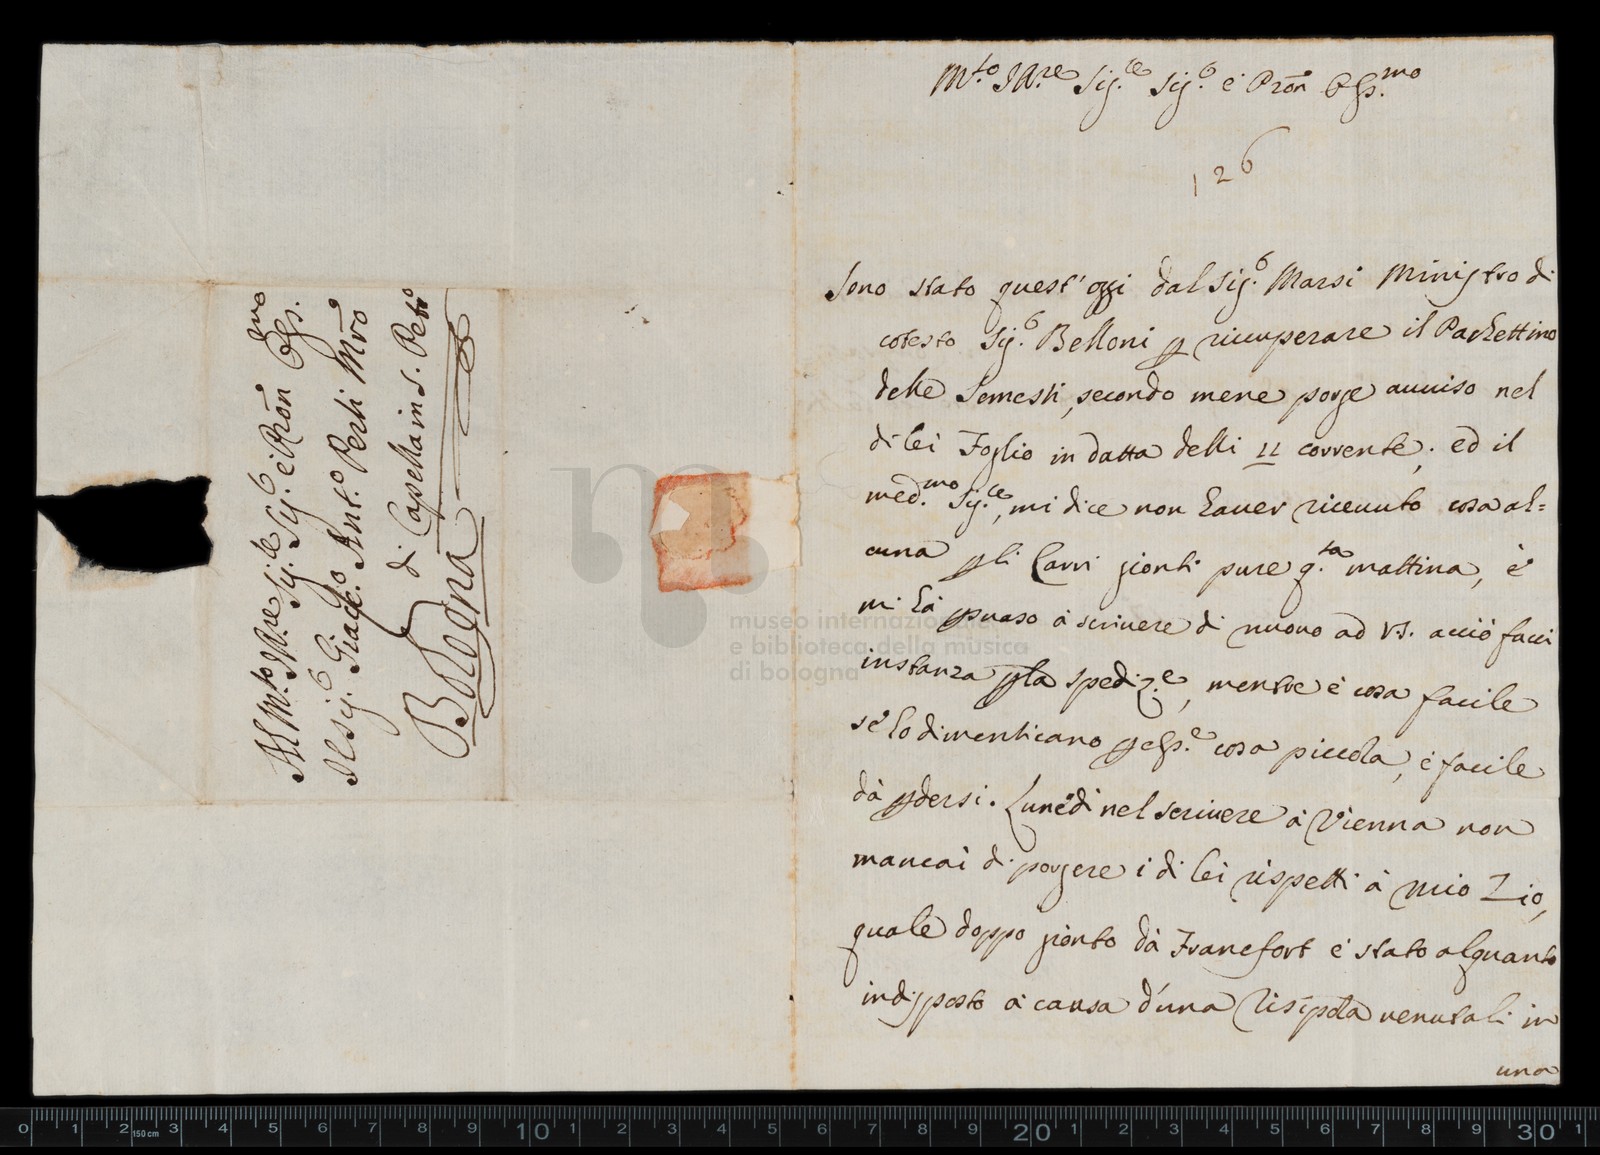 Al M.to Ill.re Sig.re Sig. e Pron Oss.mo
Il Sig. Giac.o Ant.o Perti Mro
di Capella in S. Pet.o
Bologna
museo internazionale
e biblioteca della musica
di bologna
M.to Ill.re Sig.re Sig. e Pron Oss.mo
126
Sono stato quest'oggi dal Sig. Marsi Ministro di
cotesto Sig. Belloni p ricuperare il Pachettino
delle Semesti, secondo mene porge auuiso nel
di lei Foglio in datta delli 11 corrente; ed il
med.mo Sig.re, mi dice non hauer riceuuto cosa al=
cuna p li Carri gionti pure q.ta mattina, è
mi hà psuaso à scriuere di nuouo ad VS. acciò facci
instanza p la spediz.e, mentre è cosa facile
sè lo dimenticano p ess.e cosa piccola, è facile
dà pdersi. Lunedì nel scriuere à Vienna non
mancai di porgere i di lei rispetti à mio Zio,
quale doppo gionto dà Francfort è stato alquanto
indisposto à causa d'una risipola venutali in
una
0 1 2 150 cm 3 4 5 6 7 8 9 10 1 2 3 4 5 6 7 8 9 20 1 2 3 4 5 6 7 8 9 30 1